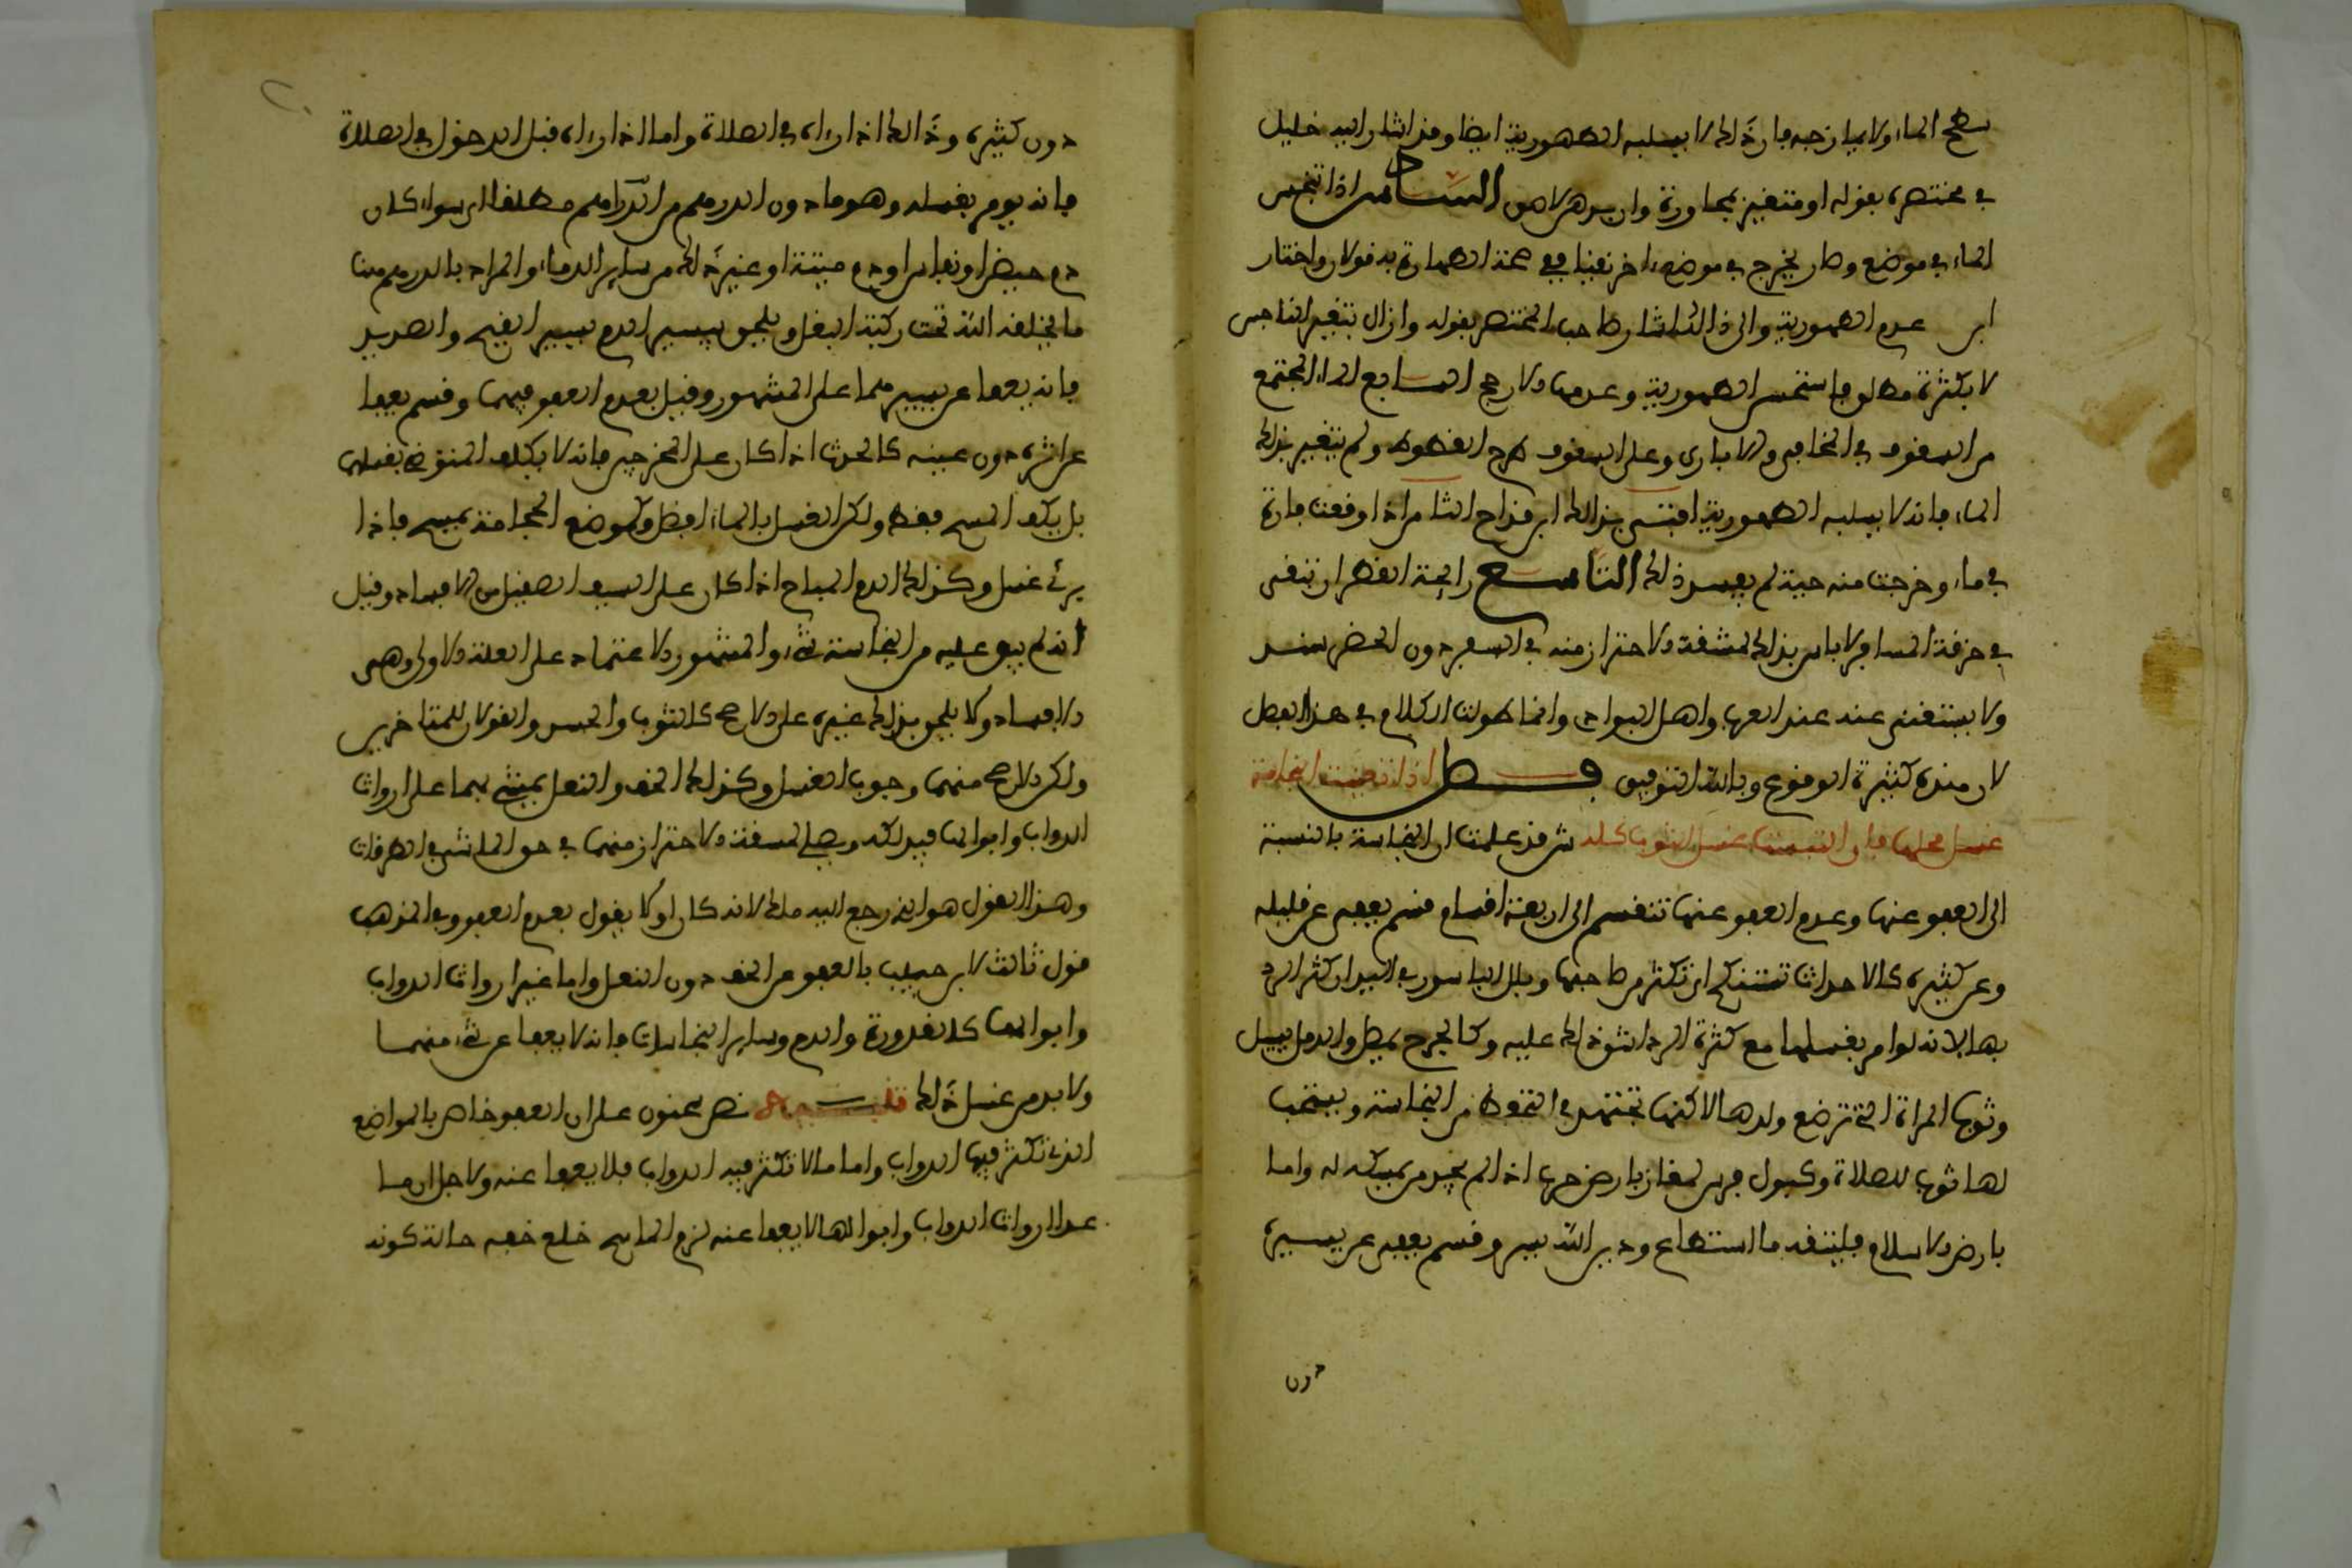 سطح الماء ولا يمازجه فإن ذلك لا يسلبه الطهورية ايضا وقد اشار اليه خليل
في مختصره بقوله او متغير بمجاورة وان بدهن لاصق السادس اذا تنجس
الماء في موضع وصار يخرج في موضع اخر نقيا ففي صحة الطهارة به قولان واختار
ابن عدم الطهورية والى ذلك اشار صاحب المختصر بقوله وان زال تغير النجس
لا بكثرة مطلق فاستحسن الطهورية وعدمها ارجح السابع الماء المجتمع
من السقوف في الخابي والاباري وعلى السقوف خرء القطوط ولم يتغير بذلك
الماء فانه لا يسلبه الطهورية افتى بذلك ابن قداح الثامن اذا وقعت فارة
في ماء وخرجت منه حية لم يفسد ذلك التاسع رايحة القطران تبقى
في خرقة المسافر لا باس بذلك لمشقة الاحتراز منه في السفر دون الحضر
ولا يستغنى عنه عند العرب واهل البوادي وانما طولت الكلام في هذا الفصل
لان هذه كثيرة الوقوع وبالله التوفيق فصل اذا تعينت النجاسة
غسل محلها فان التبست غسل الثوب كله ش قد علمت ان النجاسة بالنسبة
الى العفو عنها وعدم العفو عنها تنقسم الى اربعة اقسام قسم يعفى عن قليله
وعن كثيره كالاحداث تستنكح اي تكثر من صاحبها وبلل الباسور في اليد ان كثر الرد
بها لانه لو امر بغسلها مع كثرة الرد لشق ذلك عليه وكالجرح يمصل والدمل يسيل
وثوب المراة التي ترضع ولدها لاكنها تجتهد في التحفظ من النجاسة ويستحب
لها ثوب للصلاة وكبول فرس لغاز بارض حرب اذا لم يجد من يمسكه له واما
بارض الاسلام فليتقه ما استطاع ودين الله يسر وقسم يعفى عن يسيره
دون
دون كثيره وذلك اذا راه في الصلاة واما اذا راه قبل الدخول في الصلاة
فانه يومر بغسله وهو ما دون الدرهم من الدم مطلقا اي سواء كان
دم حيض او نفاس او دم ميتة او غير ذلك من ساير الدماء والمراد بالدرهم هنا
ما يخلقه الله تحت ركبة البغل ويلحق بيسير الدم يسير القيح والصديد
فانه يعفا عن يسيرهما على المشهور وقيل بعدم العفو فيهما وقسم يعفا
عن اثره دون عينه كالحدث اذا كان على المخرجين فانه لا يكلف المتوضئ بغسلهما
بل يكف المسح فقط ولكن الغسل بالماء افضل وكموضع الحجامة يمسح فاذا
برئ غسل وكذلك الدم المباح اذا كان على السيف الصقيل من الافساد وقيل
انه لم يبق عليه من النجاسة شيء والمشهور الاعتماد على العلة الاولى وهي
الافساد ولا يلحق بذلك غيره على الارجح كالثوب والجسد والقولان للمتاخرين
ولكن الارجح منهما وجوب الغسل وكذلك الخف والنعل يمشى بهما على ارواث
الدواب وابوالها فيدلكه ويصلي لمشقة الاحتراز منهما في حق الماشي في الطرقات
وهذا القول هو الذي رجع اليه ملك لانه كان اولا يقول بعدم العفو وفي المذهب
قول ثالث لابن حبيب بالعفو عن الخف دون النعل واما غير ارواث الدواب
وابوالها كالعذرة والدم وساير النجاسات فانه لا يعفا عن شيء منها
ولا بد من غسل ذلك تنبيه نص سحنون على ان العفو خاص بالمواضع
الذي تكثر فيها الدواب واما ما لا تكثر فيه الدواب فلا يعفا عنه ولاجل ان ما
عدا ارواث الدواب وابوالها لا يعفا عنه لزم الماسح خلع خفه حالة كونه